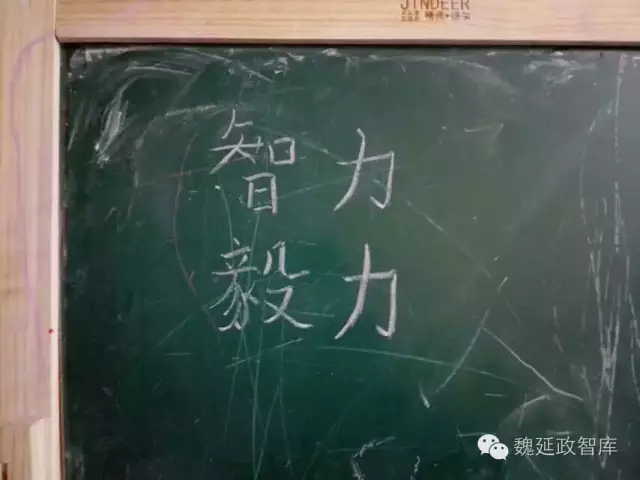 JINDEER
智力
毅力
魏延政智库